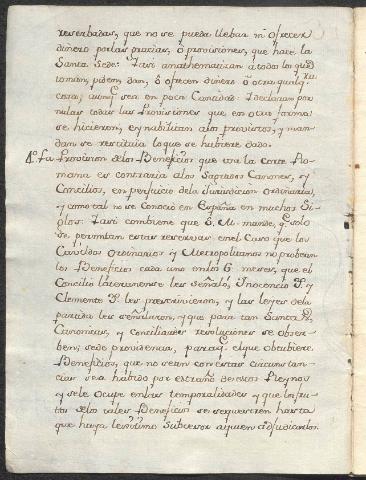 reserbadas, que no se pueda llebar ni ofrecer
dinero por las gracias, ò provisiones, que hace la
Santa Sede: I asi anathematizan a todos los qᵉ
toman, piden, dan, ò ofrecen dinero ù otra qualqᵉ
cosa, aunqᵉ sea en poca Cantidad. I declaran por
nulas todas las Provisiones que en otra forma
se hicieron, è ynabilitan a los provistos, y man-
dan se restituia lo que se hubiere dado.
La Provision de los Beneficios que usa la corte Ro-
mana es contraria a los Sagrados Canones, y
Concilios, en perjuicio de la Jurisdicion Ordinaria,
y como tal no se conociò en España en muchos Si-
glos. I asi combiene que S. M. mande, qᵉ solo
se permitan estas reservas en el Caso que los
Cavildos Ordinarios y Metropolitanos no probean
los Beneficios cada uno en los 6 meses, que el
Concilio lateranense les señalò, Inocencio
Clemente les prescrivieron, y las leyes de la
partida les señalaron, y que para tan Santas,
Canonicas, y Conciliares resoluciones se obser-
ben, se dè providencia, paraqᵉ el que obtubiere
Beneficios, que no sean con estas circunstan-
cias sea habido por estraño de estos Reynos
y se le ocupe en las temporalidades y que los fru-
tos de los tales Beneficios se sequestren hasta
que haya lexitimo Subcesor a quien adjudicarlos.